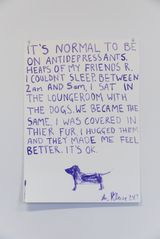 IT'S NORMAL TO BE
ON ANTIDEPRESSANTS.
HEAPS OF MY FRIENDS R.
I COULDNT SLEEP. BETWEEN
2am AND 5am, I SAT IN
THE LOUNGEROOM WITH
THE DOGS. WE BECAME THE
SAME. I WAS COVERED IN
THIER FUR. I HUGGED THEM
AND THEY MADE ME FEEL
BETTER. IT'S OK.